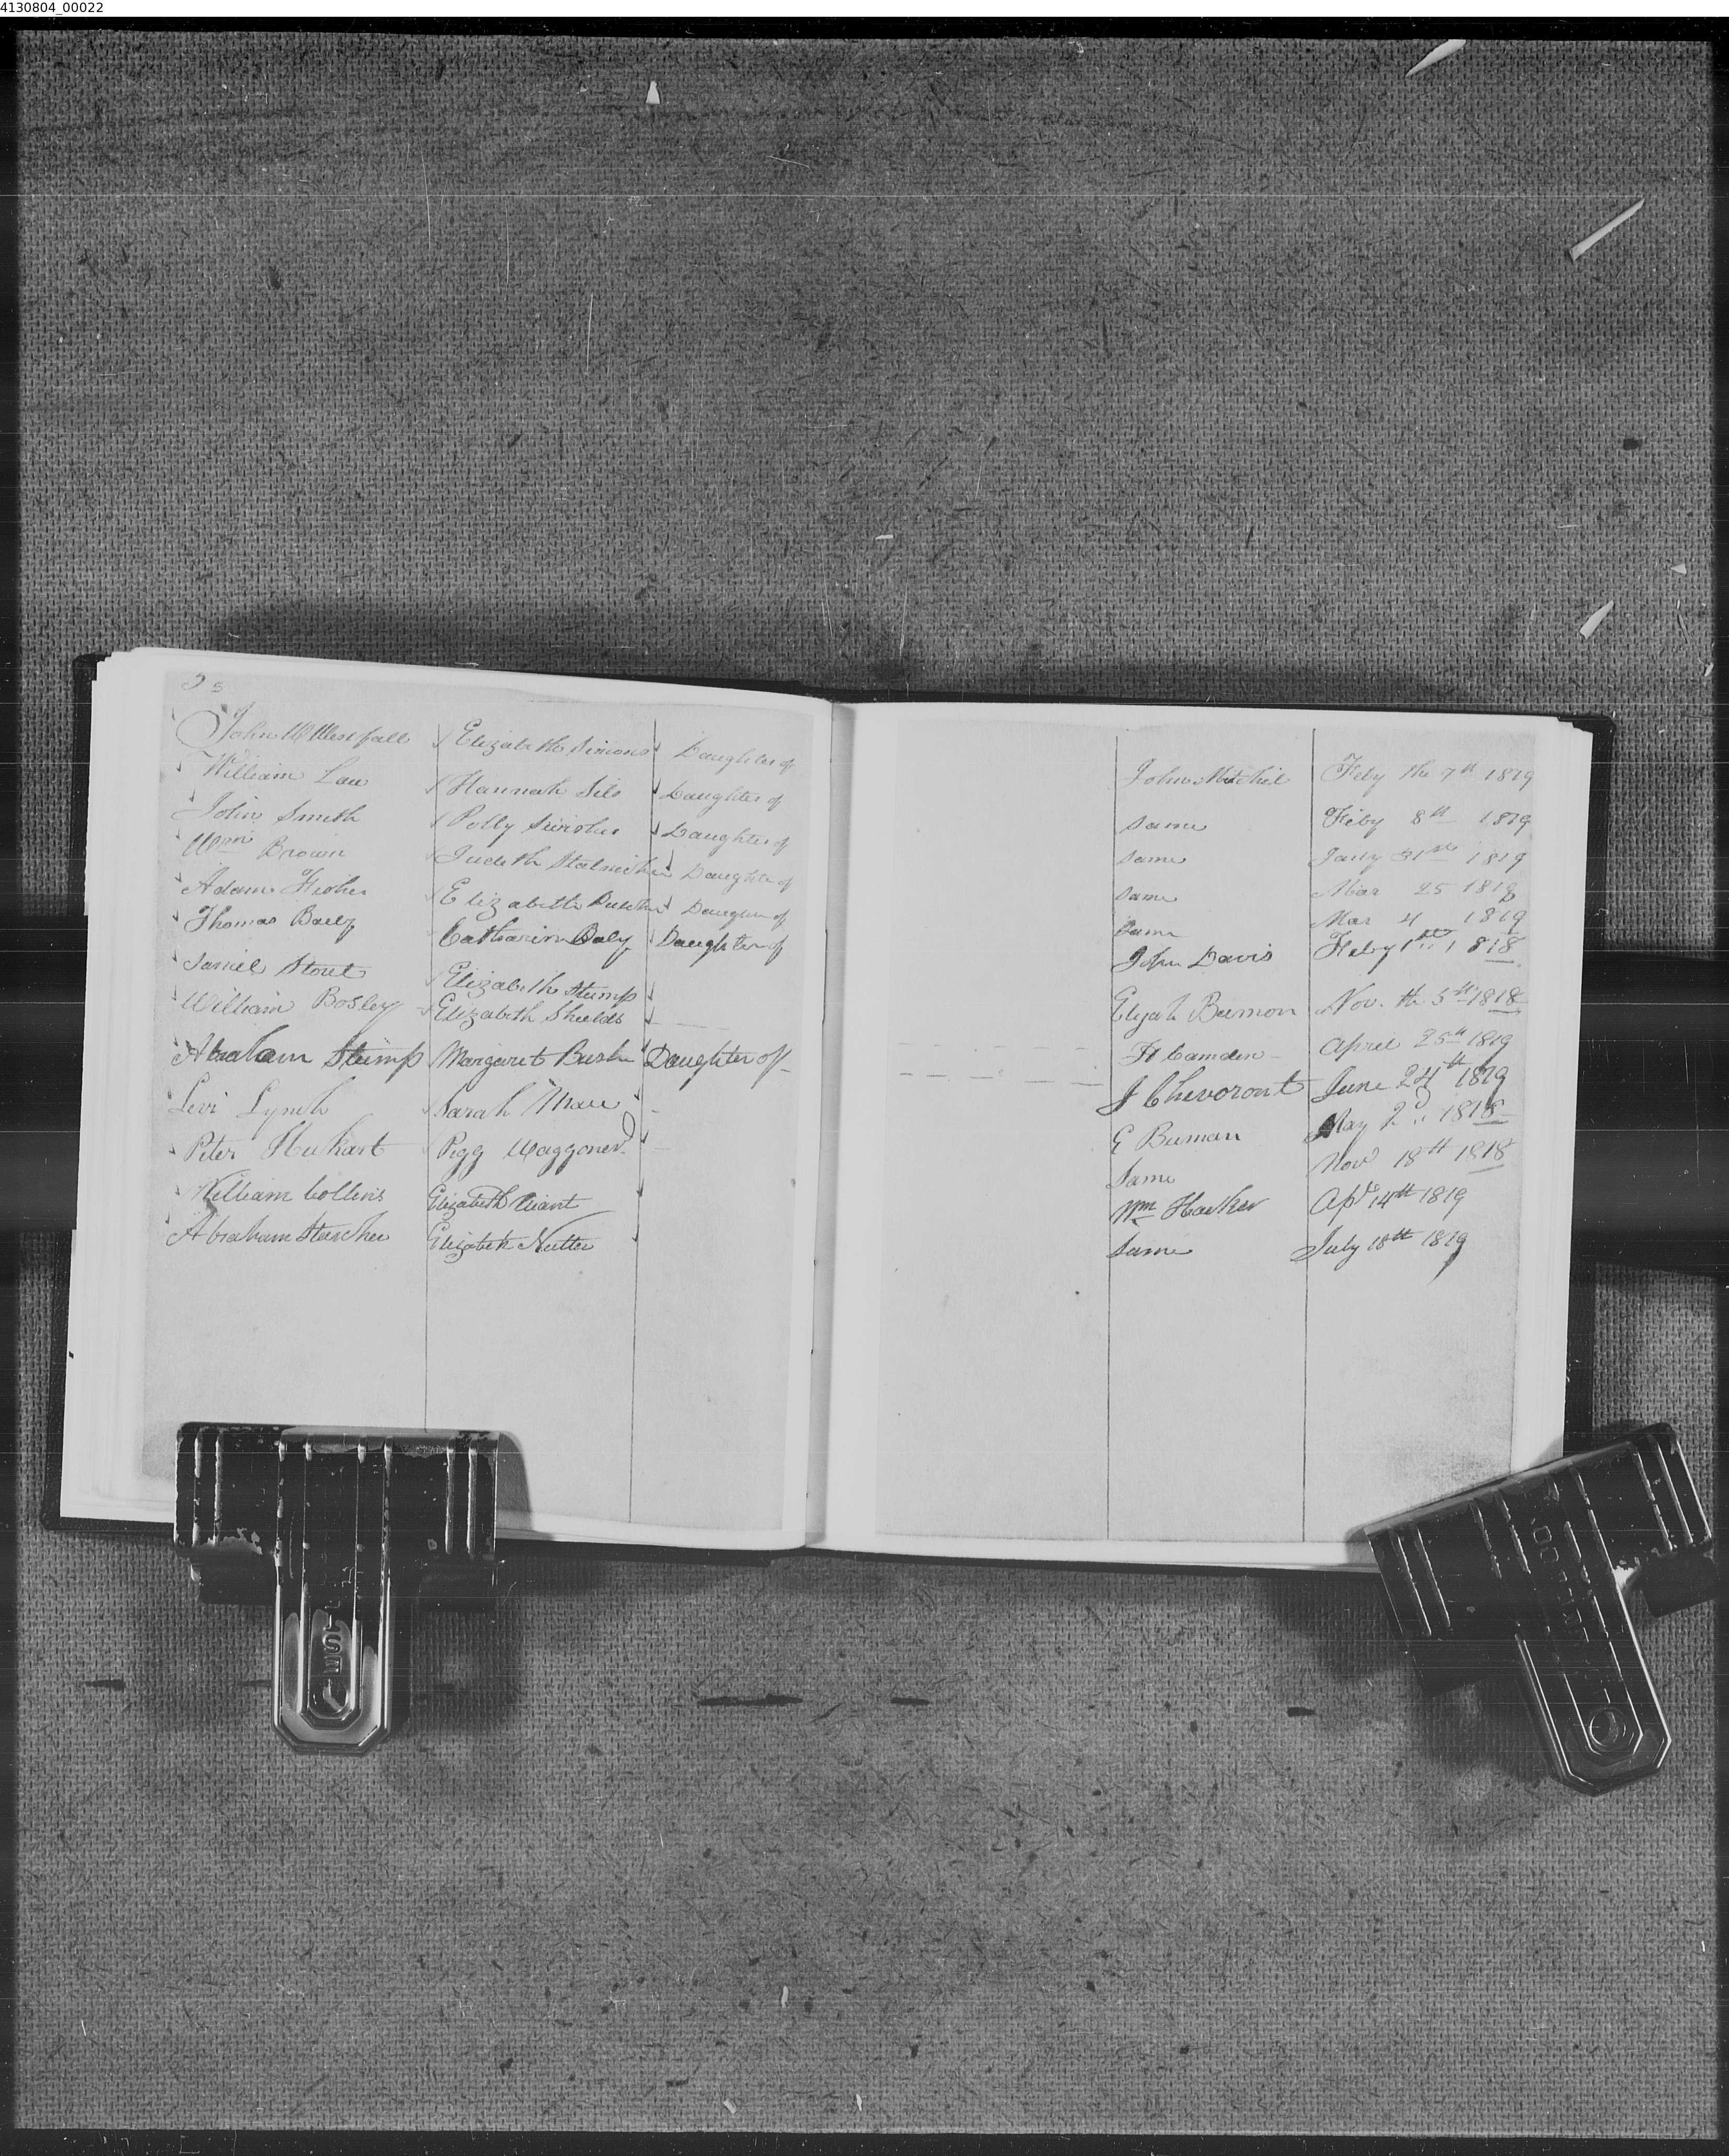 4130804_00022
John W Westfall Elizabeth Simons Daughter of John Mitchel Feby the 7th 1819
William Law Hannah Sils Daughter of same Feby 8th 1819
John Smith Polly Daughter of same Jany 31st 1819
Wm Brown Judeth Daughter of same Mar 25 1818
Adam Fisher Elizabeth Daughter of same Mar 4 1819
Thomas Baily Catharine Daughter of John Davis Feby 1st 1818
Daniel Stout Elizabeth Stump Elijah Nov. the 5th 1818
William Bosley Elizabeth Shields H Camden April 25th 1819
Abraham Stump Margaret Bush Daughter of J Chevoront June 24th 1819
Levi Lynch Sarah E May 2d 1818
Peter Pegg Waggoner Same Nov 18th 1818
William Collins Elizabeth Wiant Wm Hacker Apl 14th 1819
Abraham Starcher Elizabeth Nutter same July 18th 1819